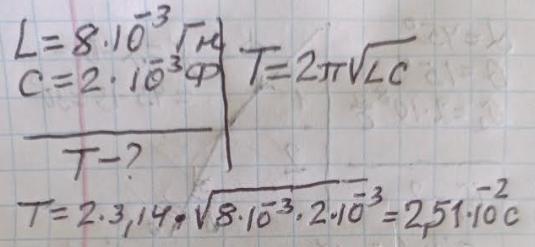 L=8·10⁻³ Гн
C=2·10⁻³Ф
T=2π√LC
T-?
T=2·3,14·√8·10⁻³·2·10⁻³=2,51·10⁻²с